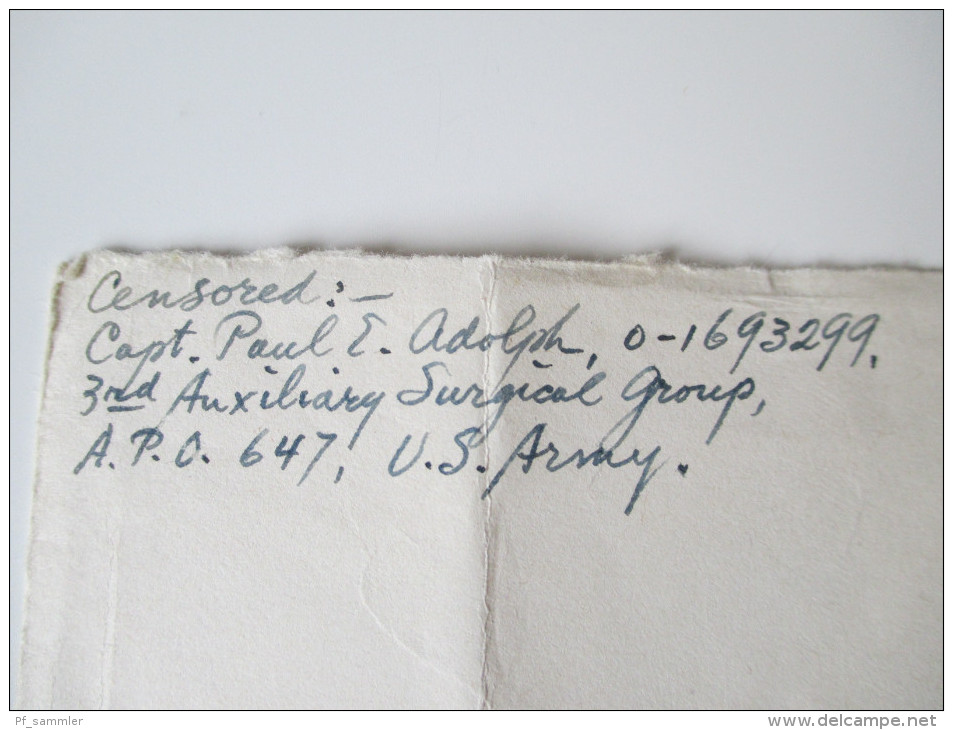 Censored:-
Capt. Paul E. Adolph, O-1693299,
3rd Auxiliary Surgical Group,
A.P.O. 647, U.S. Army.
Pf_sammler
www.delcampe.net